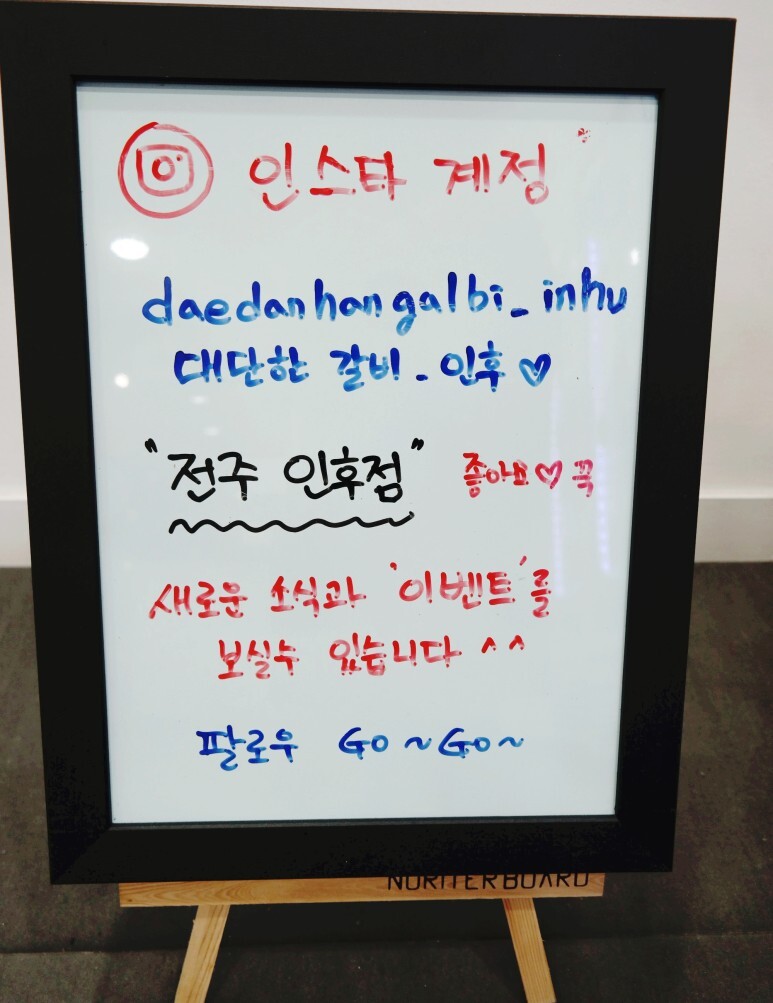 인스타 계정
daedanhangalbi_inhu
대단한 갈비_인후♡
"전주 인후점" 좋아요♡ 꾹
새로운 소식과 '이벤트'를
보실수 있습니다 ^^
팔로우 GO~GO~
NORITERBOARD